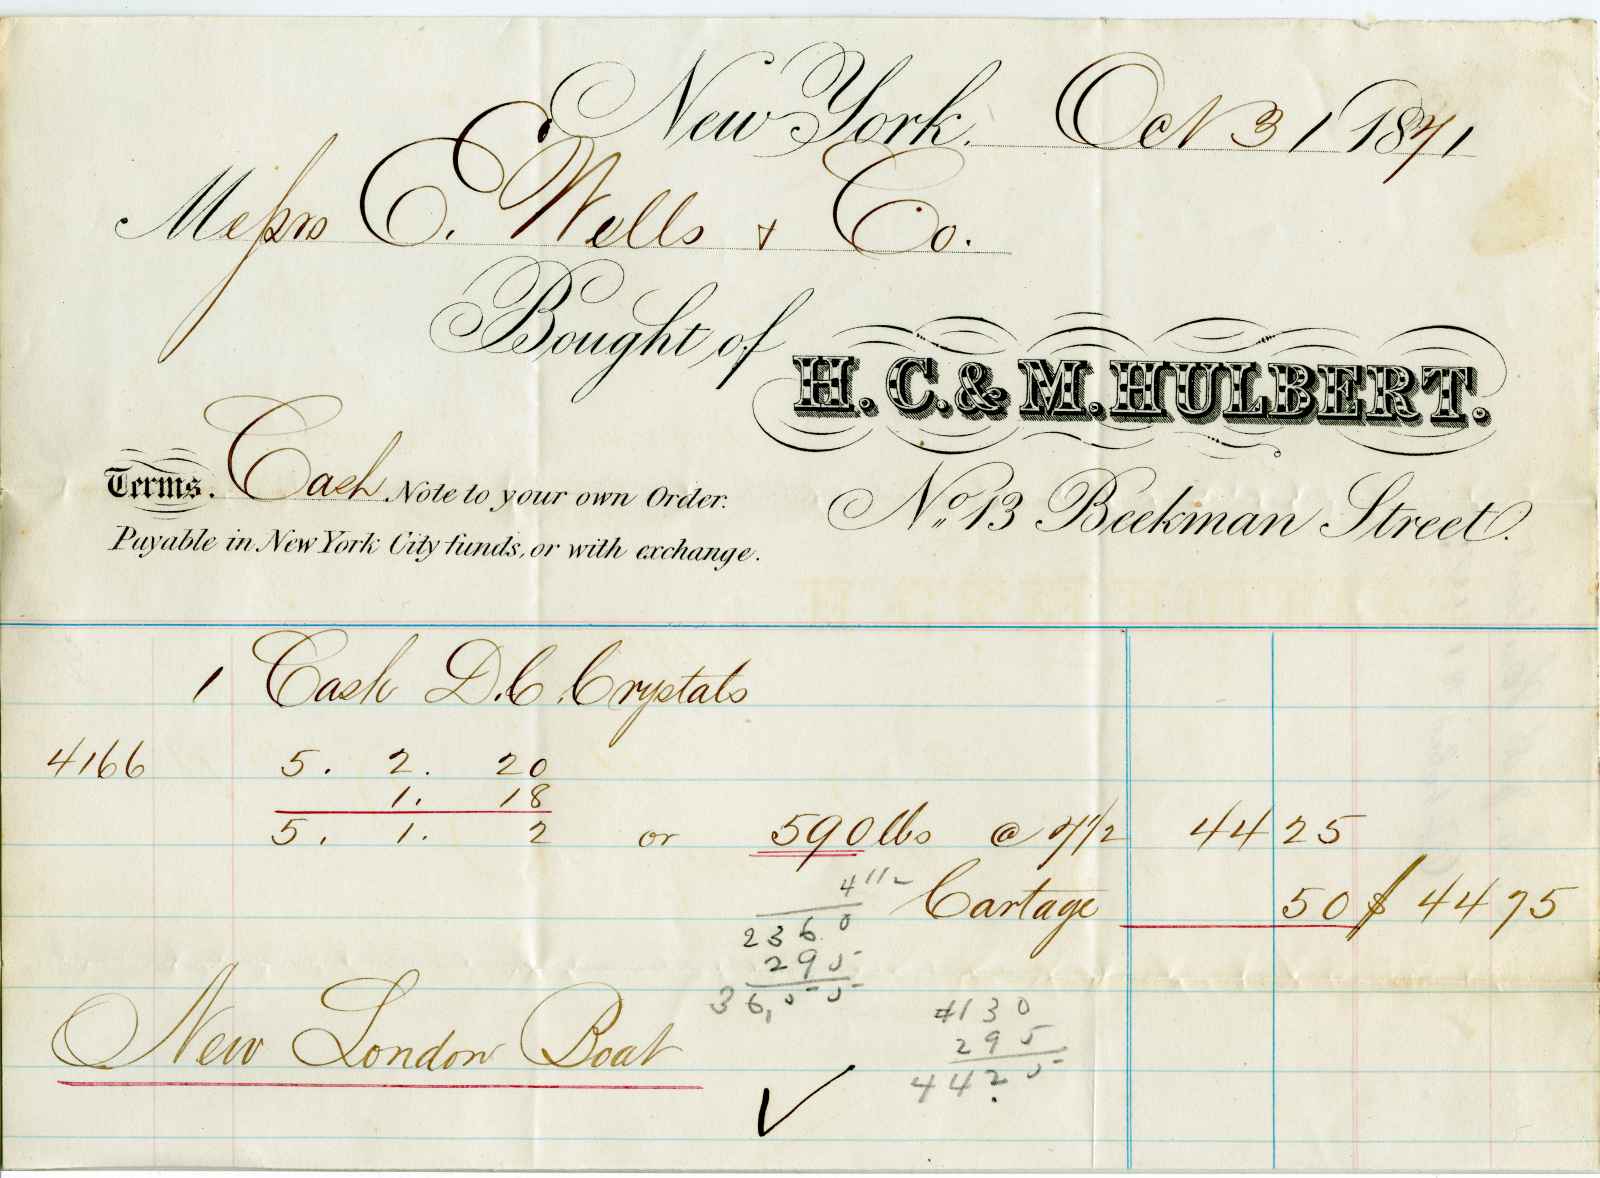 New York. Oct 31 1871
Messrs E. Wells & Co.
Bought of H. C. & M. HULBERT.
Terms. Cash Note to your own Order.
No. 13 Beekman Street.
Payable in New York City funds, or with exchange.
1 Cask D.C. Crystals
4166 5. 2. 20
1. 18
5. 1. 2 or 590 lbs @ 7½ 44 25
4 1/2 Cartage 50 $ 44 75
2360
295
36,55
4130
295
4425
New London Boat